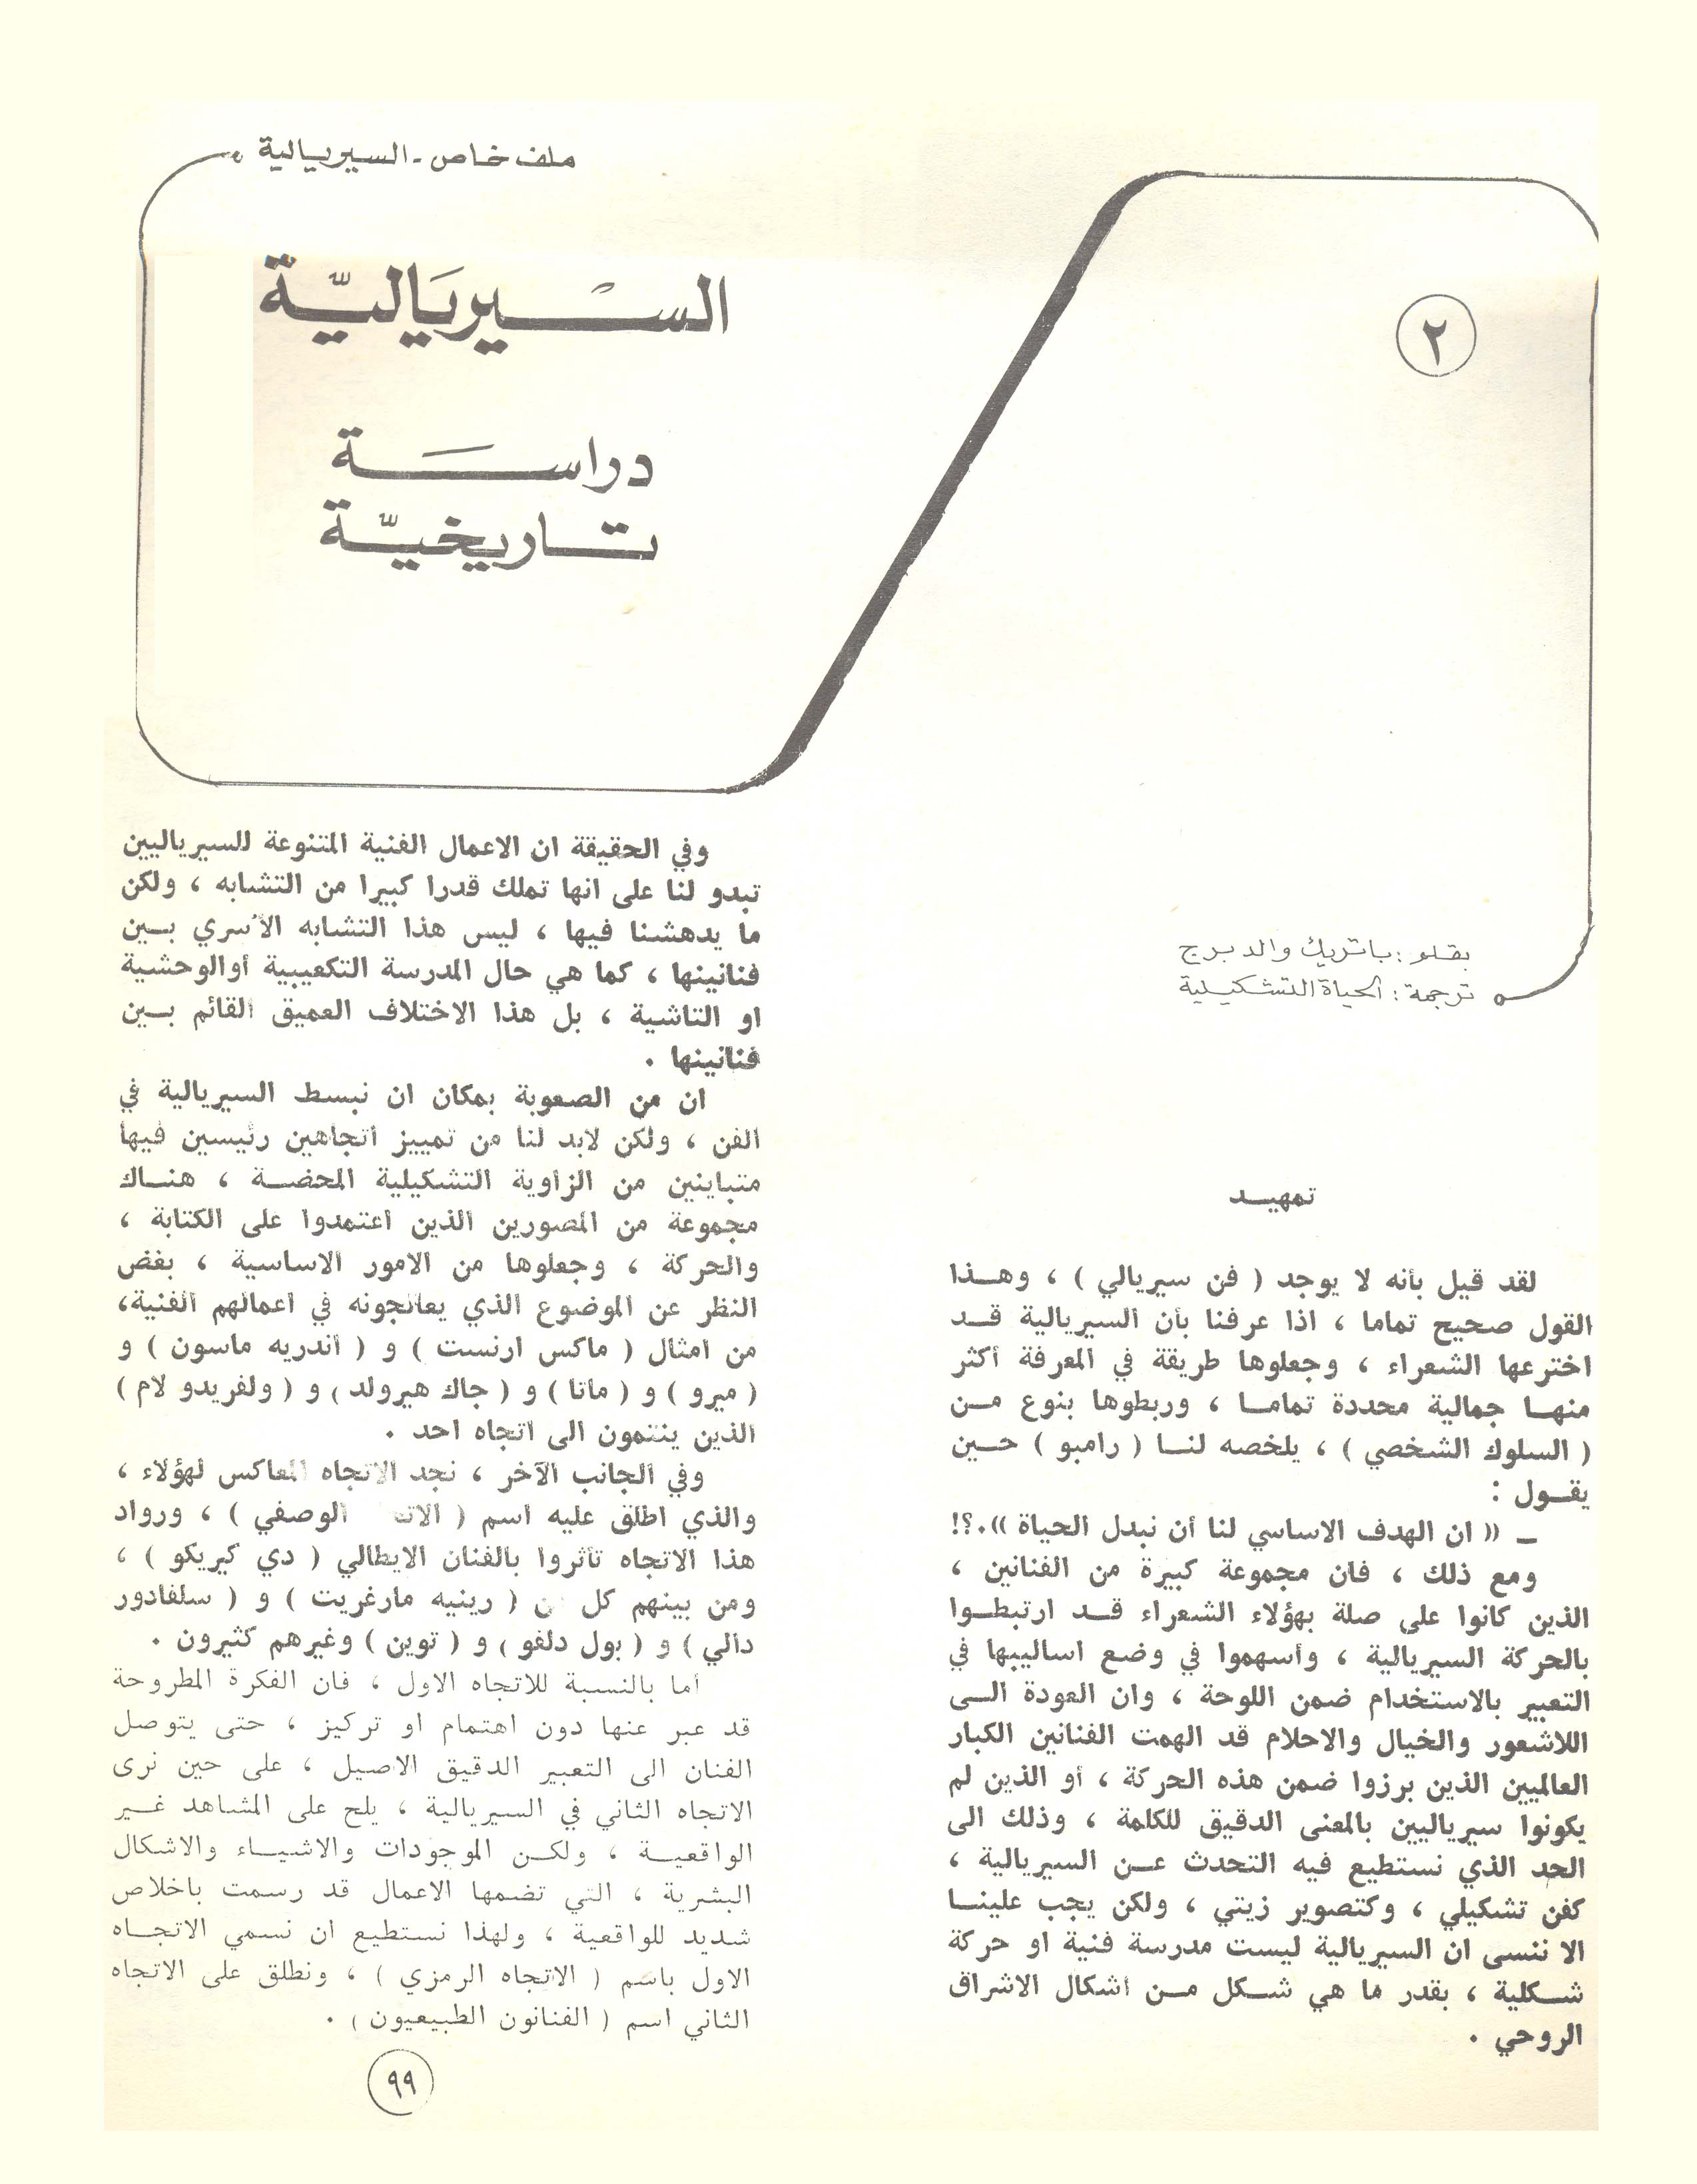 ملف خاص - السيريالية
السيرياليّة
دراسة
تاريخيّة
٢
بقلم : باتريك والدبرج
ترجمة : الحياة التشكيلية
تمهيد
لقد قيل بأنه لا يوجد ( فن سيريالي ) ، وهذا
القول صحيح تماما ، اذا عرفنا بأن السيريالية قد
اخترعها الشعراء ، وجعلوها طريقة في المعرفة أكثر
منها جمالية محددة تماما ، وربطوها بنوع من
( السلوك الشخصي ) ، يلخصه لنا ( رامبو ) حين
يقول :
ـ « ان الهدف الاساسي لنا أن نبدل الحياة ».؟!
ومع ذلك ، فان مجموعة كبيرة من الفنانين ،
الذين كانوا على صلة بهؤلاء الشعراء قد ارتبطوا
بالحركة السيريالية ، وأسهموا في وضع اساليبها في
التعبير بالاستخدام ضمن اللوحة ، وان العودة الى
اللاشعور والخيال والاحلام قد الهمت الفنانين الكبار
العالميين الذين برزوا ضمن هذه الحركة ، أو الذين لم
يكونوا سيرياليين بالمعنى الدقيق للكلمة ، وذلك الى
الحد الذي نستطيع فيه التحدث عن السيريالية ،
كفن تشكيلي ، وكتصوير زيتي ، ولكن يجب علينا
الا ننسى ان السيريالية ليست مدرسة فنية او حركة
شكلية ، بقدر ما هي شكل من أشكال الاشراق
الروحي .
وفي الحقيقة ان الاعمال الفنية المتنوعة للسيرياليين
تبدو لنا على انها تملك قدرا كبيرا من التشابه ، ولكن
ما يدهشنا فيها ، ليس هذا التشابه الأسري بين
فنانينها ، كما هي حال المدرسة التكعيبية أوالوحشية
او التاشية ، بل هذا الاختلاف العميق القائم بين
فنانينها .
ان من الصعوبة بمكان ان نبسط السيريالية في
الفن ، ولكن لابد لنا من تمييز اتجاهين رئيسين فيها
متباينين من الزاوية التشكيلية المحضة ، هناك
مجموعة من المصورين الذين اعتمدوا على الكتابة ،
والحركة ، وجعلوها من الامور الاساسية ، بغض
النظر عن الموضوع الذي يعالجونه في اعمالهم الفنية،
من امثال ( ماكس ارنست ) و ( أندريه ماسون ) و
( ميرو ) و ( ماتا ) و ( جاك هيرولد ) و ( ولفريدو لام )
الذين ينتمون الى اتجاه احد .
وفي الجانب الآخر ، نجد الاتجاه المعاكس لهؤلاء ،
والذي اطلق عليه اسم ( الوصفي ) ، ورواد
هذا الاتجاه تأثروا بالفنان الايطالي ( دي كيريكو ) ،
ومن بينهم كل ( رينيه مارغريت ) و ( سلفادور
دالي ) و ( بول دلفو ) و ( توين ) وغيرهم كثيرون .
أما بالنسبة للاتجاه الاول ، فان الفكرة المطروحة
قد عبر عنها دون اهتمام او تركيز ، حتى يتوصل
الفنان الى التعبير الدقيق الاصيل ، على حين نرى
الاتجاه الثاني في السيريالية ، يلح على المشاهد غير
الواقعية ، ولكن الموجودات والاشياء والاشكال
البشرية ، التي تضمها الاعمال قد رسمت باخلاص
شديد للواقعية ، ولهذا نستطيع ان نسمي الاتجاه
الاول باسم ( الاتجاه الرمزي ) ، ونطلق على الاتجاه
الثاني اسم ( الفنانون الطبيعيون ) .
٩٩